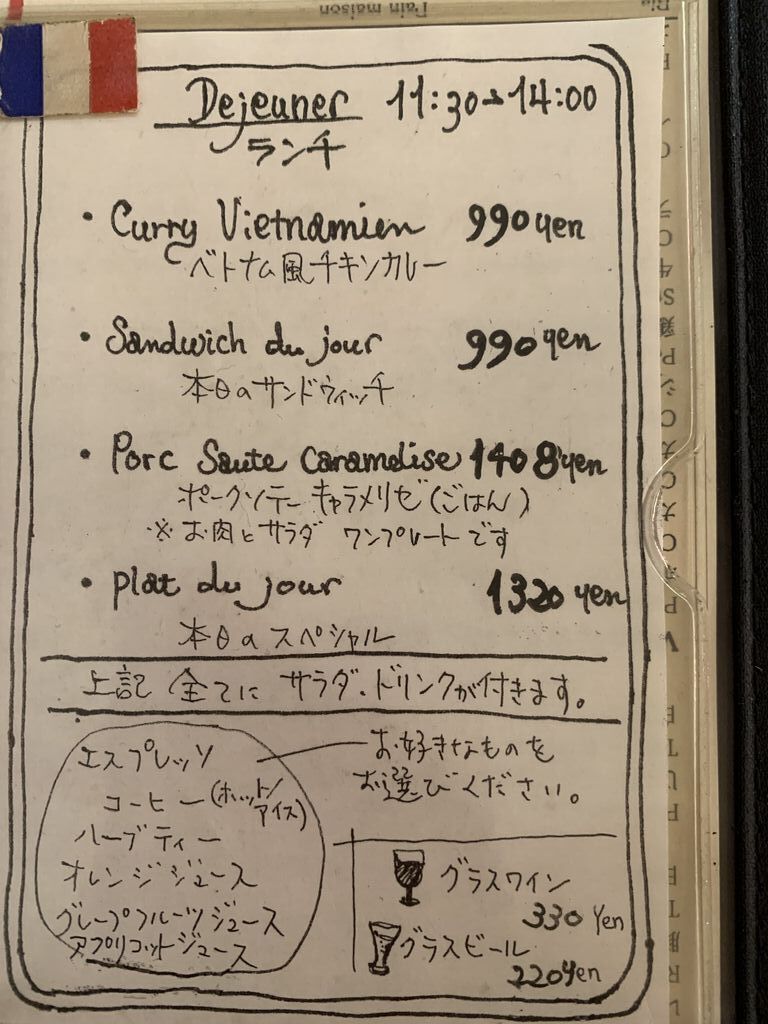 Pain maison
Dejeuner 11:30→14:00
ランチ
・Curry Vietnamien 990yen
ベトナム風チキンカレー
・Sandwich du jour 990yen
本日のサンドウィッチ
・Porc Saute caramelise 1408yen
ポークソテー キャラメリゼ(ごはん)
※お肉とサラダ ワンプレートです
・plat du jour 1320yen
本日のスペシャル
上記 全てに サラダ、ドリンクが付きます。
エスプレッソ
コーヒー(ホット/アイス)
ハーブティー
オレンジジュース
グレープフルーツジュース
アプリコットジュース
お好きなものを
お選びください。
グラスワイン
330 Yen
グラスビール
220yen